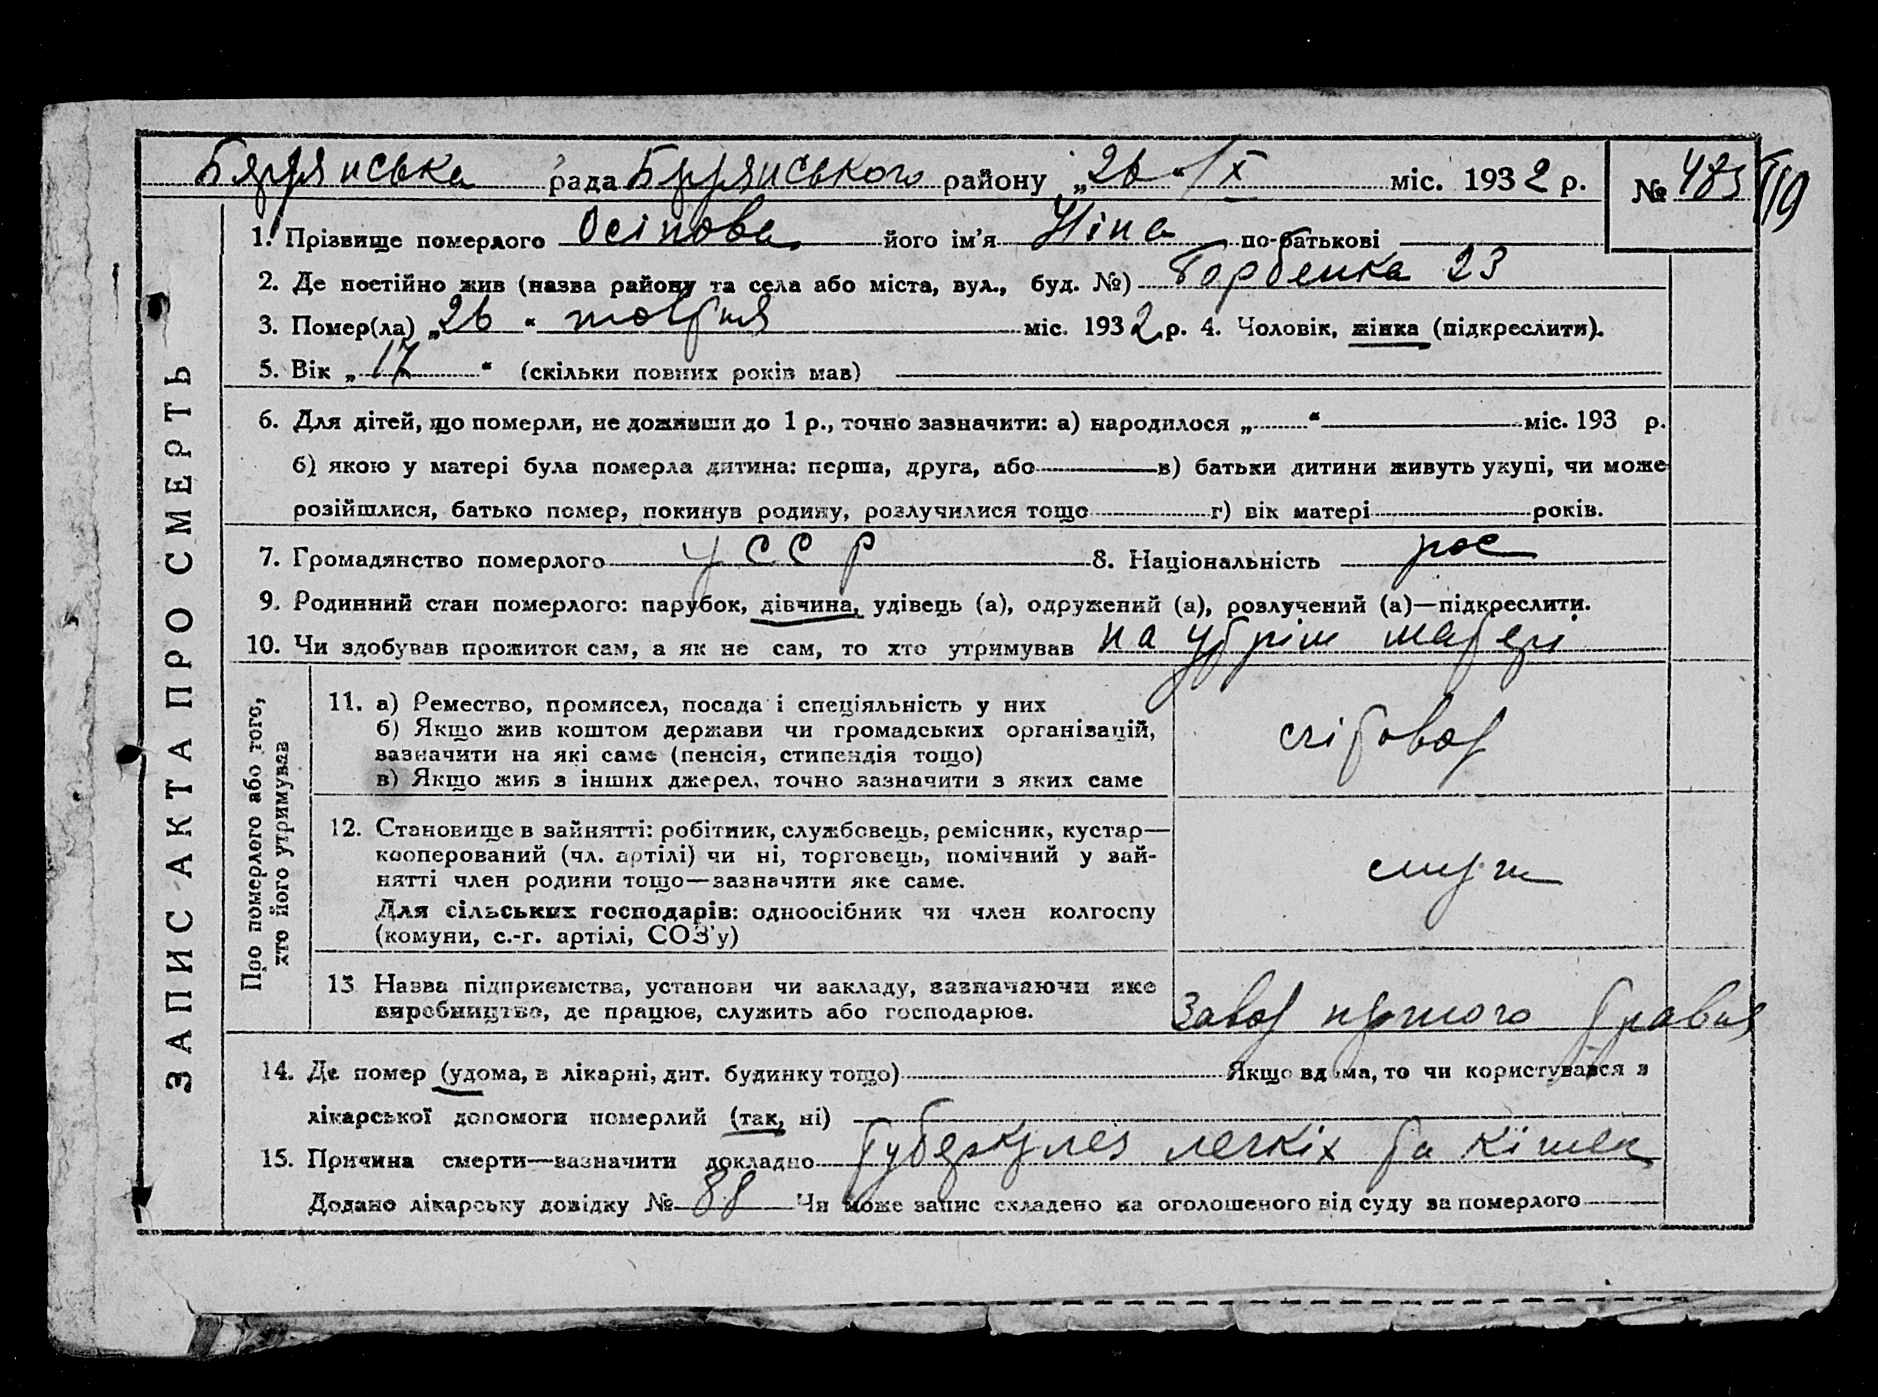 Бердянська рада Бердянського району „26“ /X міс. 1932 р. № 483
119
ЗАПИС АКТА ПРО СМЕРТЬ
1. Прізвище померлого Осіпова його ім’я Ніна по-батькові
2. Де постійно жив (назва району та села або міста, вул., буд. №) Горбенка 23
3. Помер(ла) „26“ жовтня міс. 1932 р. 4. Чоловік, жінка (підкреслити).
5. Вік „17“ (скільки повних років мав)
6. Для дітей, що померли, не доживши до 1 р., точно зазначити: а) народилося „ “ міс. 193 р.
б) якою у матері була померла дитина: перша, друга, або в) батьки дитини живуть укупі, чи може
розійшлися, батько помер, покинув родину, розлучилися тощо г) вік матері років.
7. Громадянство померлого УССР 8. Національність рос
9. Родинний стан померлого: парубок, дівчина, удівець (а), одружений (а), розлучений (а)—підкреслити.
10. Чи здобував прожиток сам, а як не сам, то хто утримував на утрім матері
Про померлого або того,
хто його утримував
11. а) Ремество, промисел, посада і спеціяльність у них
б) Якщо жив коштом держави чи громадських організацій,
зазначити на які саме (пенсія, стипендія тощо)
в) Якщо жив з інших джерел, точно зазначити з яких саме
рахівод
12. Становище в зайнятті: робітник, службовець, ремісник, кустар—
кооперований (чл. артілі) чи ні, торговець, помічний у зай-
нятті член родини тощо—зазначити яке саме.
Для сільських господарів: одноосібник чи член колгоспу
(комуни, с.-г. артілі, СОЗ'у)
служ
13 Назва підприємства, установи чи закладу, зазначаючи яке
виробництво, де працює, служить або господарює.
Завод травня
14. Де помер (удома, в лікарні, дит. будинку тощо) Якщо вдома, то чи користувався з
лікарської допомоги померлий (так, ні)
15. Причина смерти—зазначити докладно туберкульоз легкіх та кішек
Додано лікарську довідку № 88 Чи може запис складено на оголошеного від суду за померлого